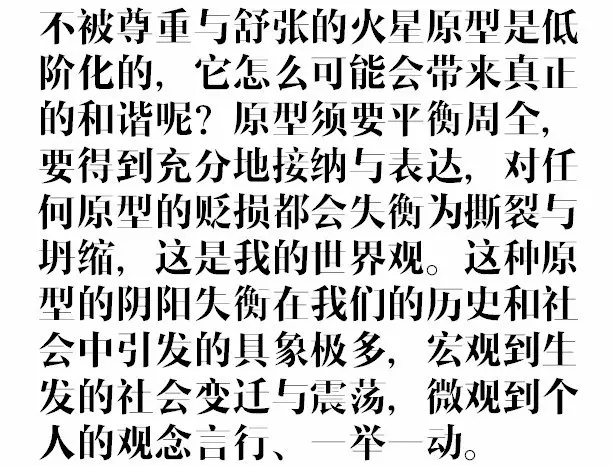 不被尊重与舒张的火星原型是低
阶化的，它怎么可能会带来真正
的和谐呢？原型须要平衡周全，
要得到充分地接纳与表达，对任
何原型的贬损都会失衡为撕裂与
坍缩，这是我的世界观。这种原
型的阴阳失衡在我们的历史和社
会中引发的具象极多，宏观到生
发的社会变迁与震荡，微观到个
人的观念言行、一举一动。